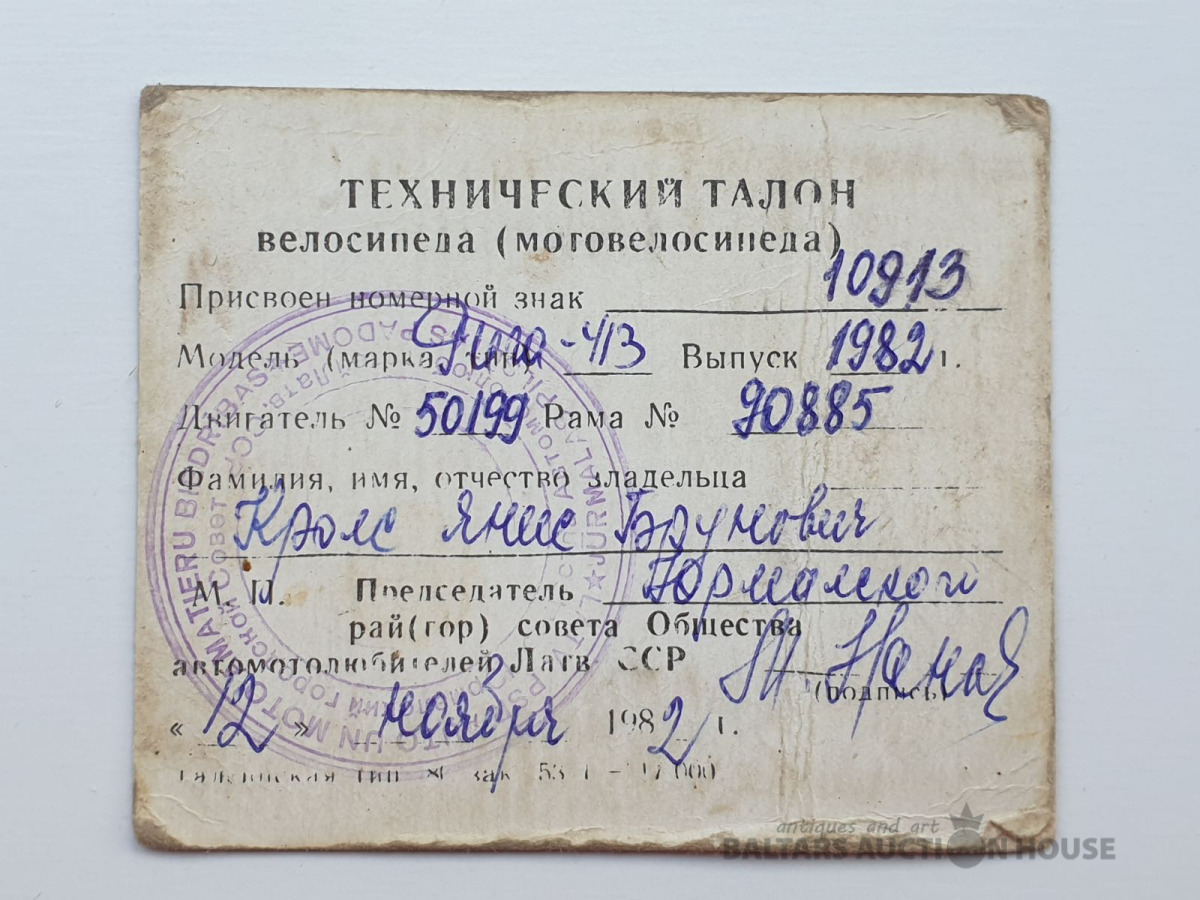 ТЕХНИЧЕСКИЙ ТАЛОН
велосипеда (мотовелосипеда)
Присвоен номерной знак 10913
Модель (марка, тип) Рига-Ч13 Выпуск 1982 г.
Двигатель № 50199 Рама № 90885
Фамилия, имя, отчество владельца
Кролс Янис Брунович
М. П. Председатель Юрмалского
рай(гор) совета Общества
автомотолюбителей Латв. ССР
(подпись)
« 12 » ноября 1982 г.
MOTO
MATERU BIEDRĪBAS
PADOME
JŪRMALA
antiques and art
BALTARS AUCTION HOUSE